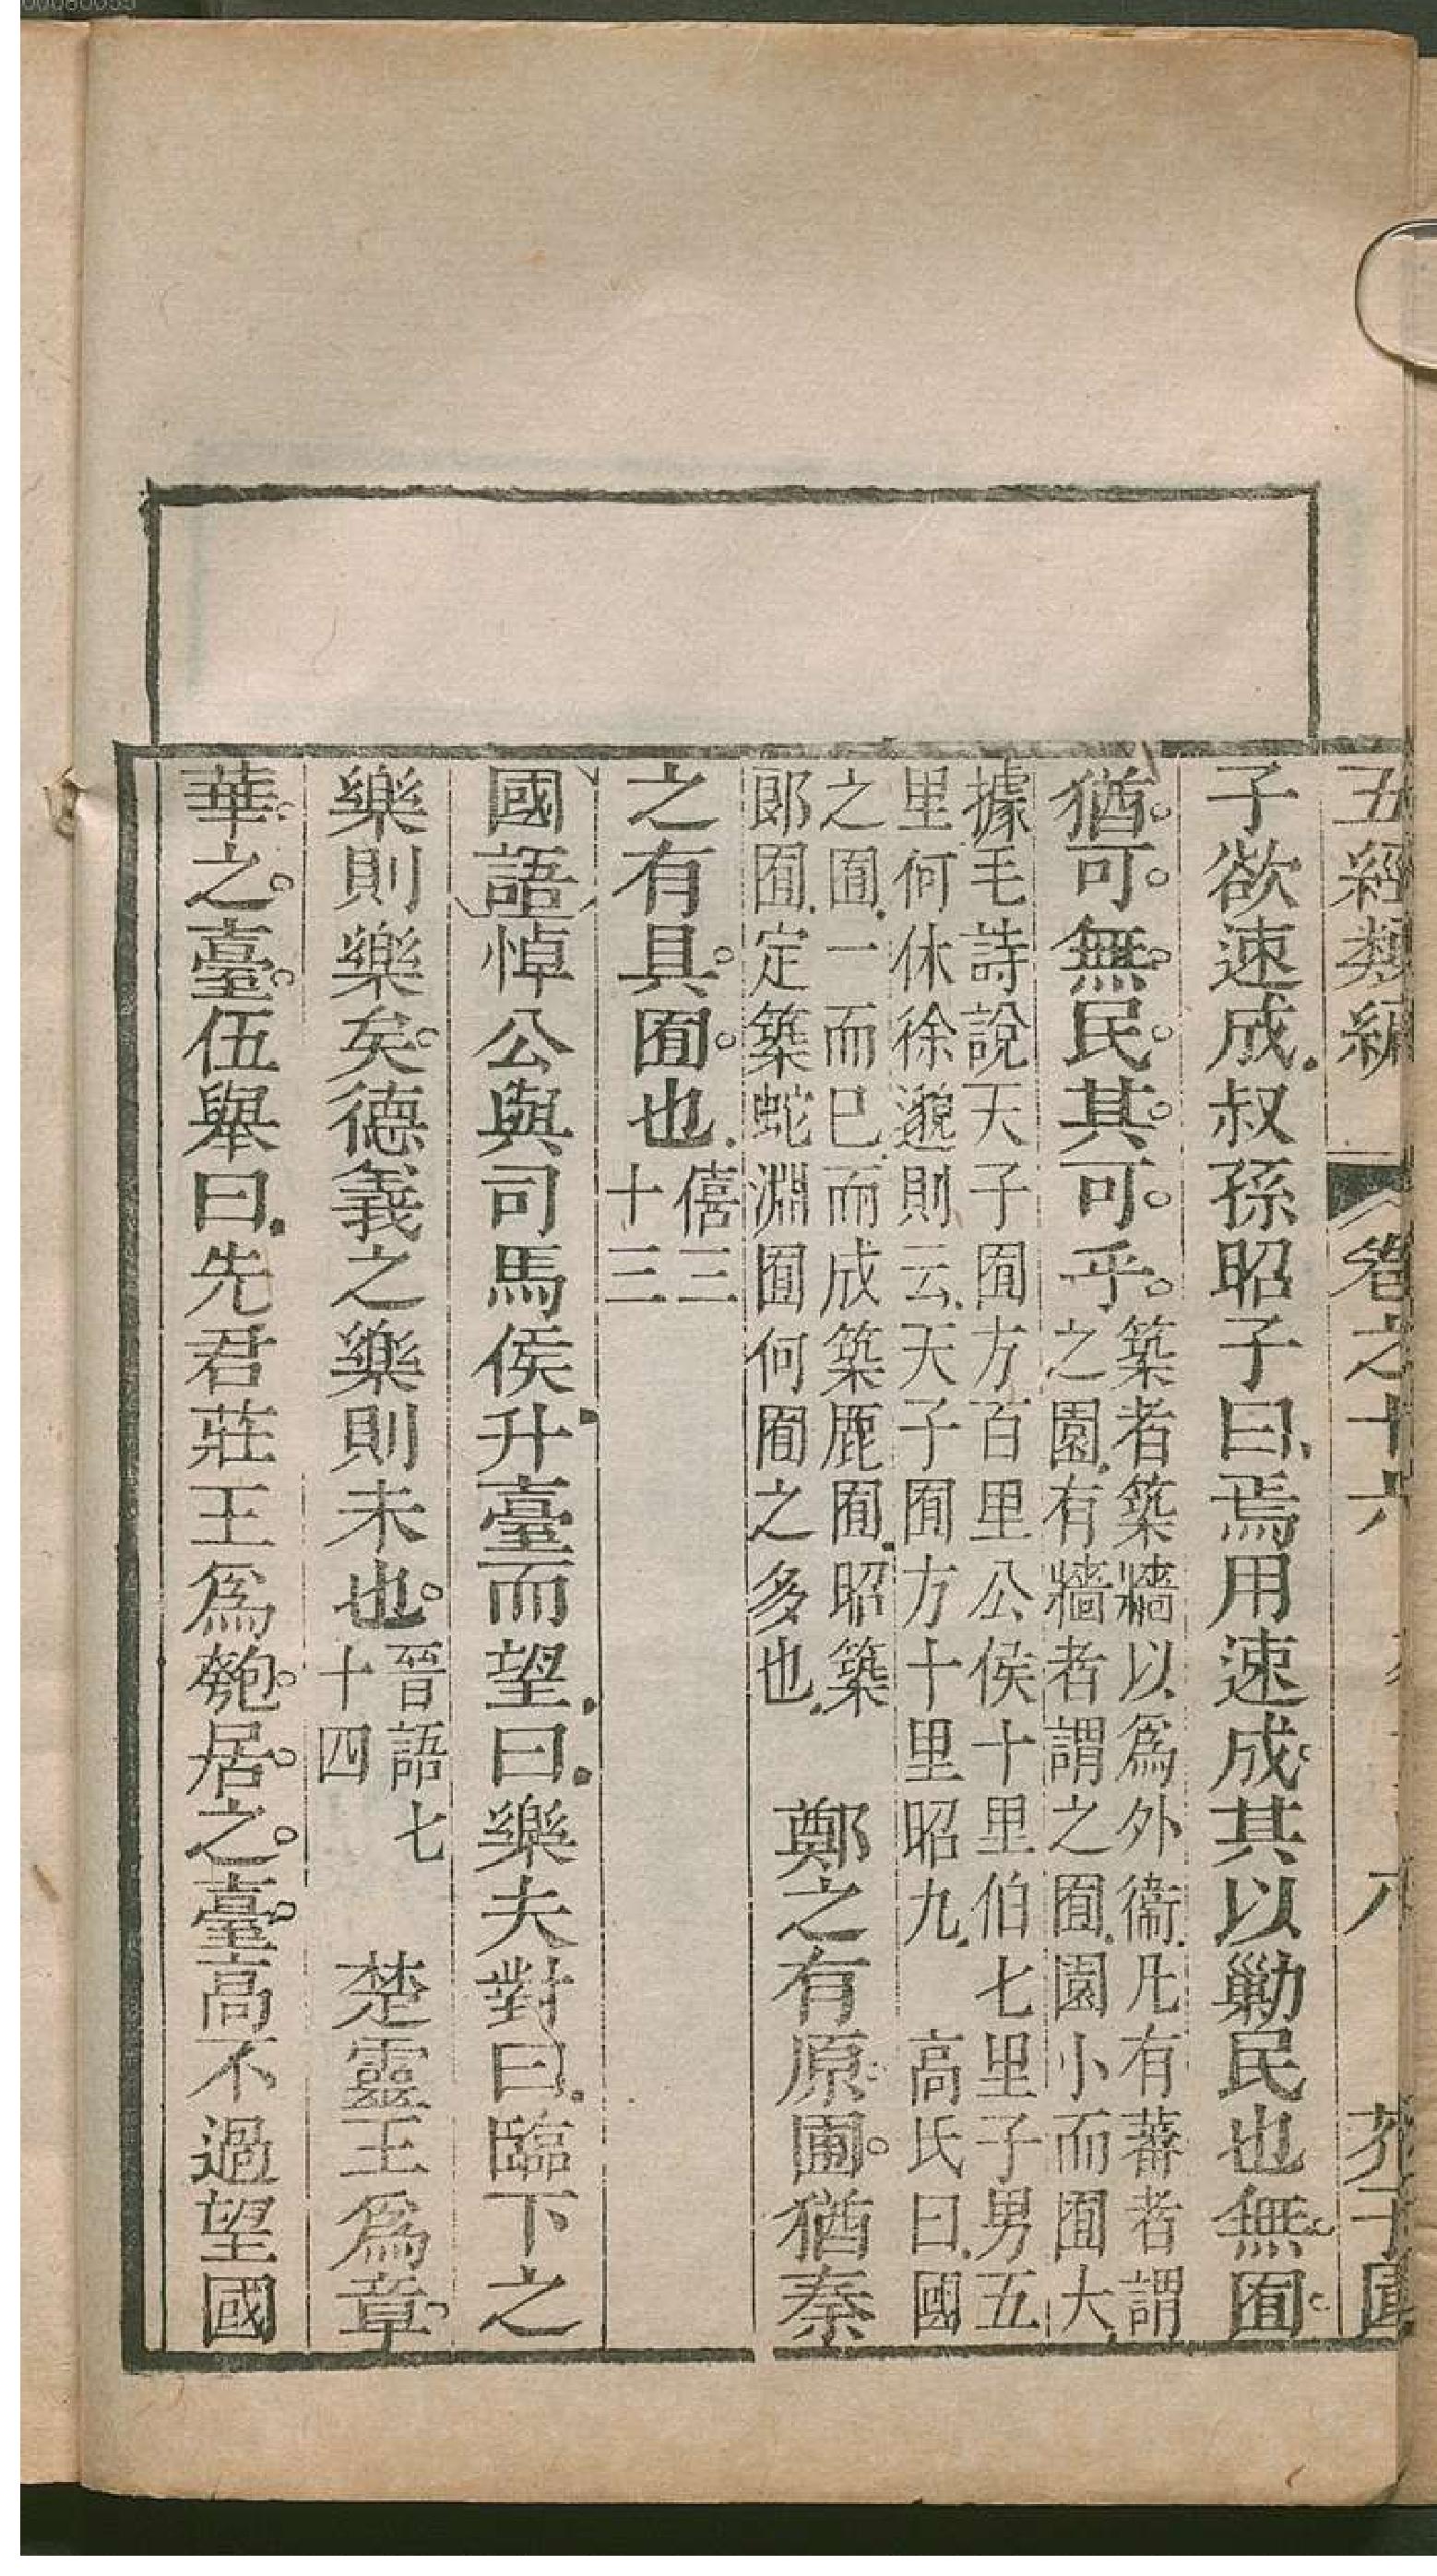 五經類編
卷之十六
六
芥子園
子欲速成叔孫昭子曰焉用速成其以勦民也無囿
猶可無民其可乎
築者築牆以爲外衞凡有蕃者謂
之園有牆者謂之囿園小而囿大
據毛詩說天子囿方百里公侯十里伯七里子男五
里何休徐邈則云天子囿方十里昭九 高氏曰國
之囿一而已而成築鹿囿昭築
郞囿定築蛇淵囿何囿之多也
鄭之有原圃猶秦
之有具囿也
僖三
十三
國語悼公與司馬侯升臺而望曰樂夫對曰臨下之
樂則樂矣德義之樂則未也
晉語七
十四
楚靈王爲章
華之臺伍舉曰先君莊王爲匏居之臺高不過望國